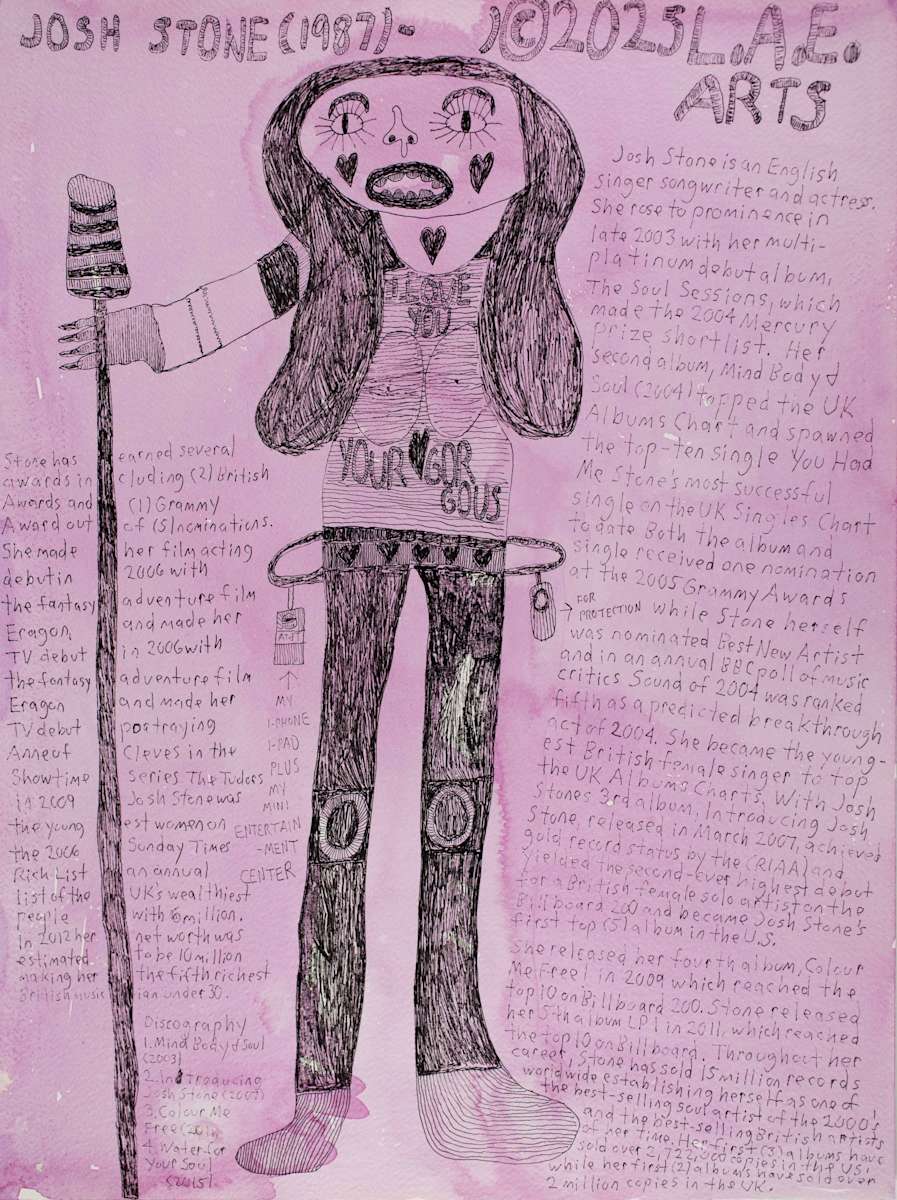 JOSH STONE (1987)- )©2025 L.A.E.
ARTS
Josh Stone is an English
singer songwriter and actress.
She rose to prominence in
late 2003 with her multi-
platinum debut album,
The Soul Sessions, which
made the 2004 Mercury
prize shortlist. Her
second album, Mind Body &
Soul (2004) topped the UK
Albums Chart and spawned
the top-ten single 'You Had
Me Stone's most successful
single on the UK Singles Chart
to date. Both the album and
single received one nomination
at the 2005 Grammy Awards
while Stone herself
was nominated Best New Artist
and in an annual BBC poll of music
critics Sound of 2004 was ranked
fifth as a predicted breakthrough
act of 2004. She became the young-
est British female singer to top
the UK Albums Charts, With Josh
Stones 3rd album, Introducing Josh
Stone, released in March 2007, achieved
gold record status by the (RIAA) and
yielded the second-ever highest debut
for a British female solo artist on the
Billboard 200 and became Josh Stone's
first top (5) album in the U.S.
She released her fourth album, Colour
Me Free! in 2009 which reached the
top 10 on Billboard 200. Stone released
her 5th album LP1 in 2011, which reached
the top 10 on Billboard. Throughout her
career, Stone has sold 15 million records
worldwide establishing herself as one of
the best-selling soul artist of the 2000's
and the best-selling British artists
of her time. Her first (3) albums have
sold over 2,722,000 copies in the US.
while her first (2) albums have sold over
2 million copies in the UK.
I LOVE
YOU
YOUR GOR
GOUS
FOR
PROTECTION
MY
I-PHONE
I-PAD
PLUS
MY
MINI
ENTERTAIN
-MENT
CENTER
Stone has earned several
awards in cluding (2) British
Awards and (1) Grammy
Award out of (5) nominations.
She made her film acting
debut in 2006 with
the fantasy adventure film
Eragon, and made her
TV debut in 2006 with
the fantasy adventure film
Eragon and made her
TV debut portraying
Anne of Cleves in the
Showtime series The Tudors
in 2009 Josh Stone was
the young est women on
the 2006 Sunday Times
Rich List an annual
list of the UK's wealthiest
people with 6 million.
in 2012 her net worth was
estimated to be 10 million
making her the fifth richest
British music ian under 30.
Discography
1. Mind Body & Soul
(2003)
2. Indtroducing
Josh Stone (2007)
3. Colour Me
4. Water for
Your Soul
(2015)